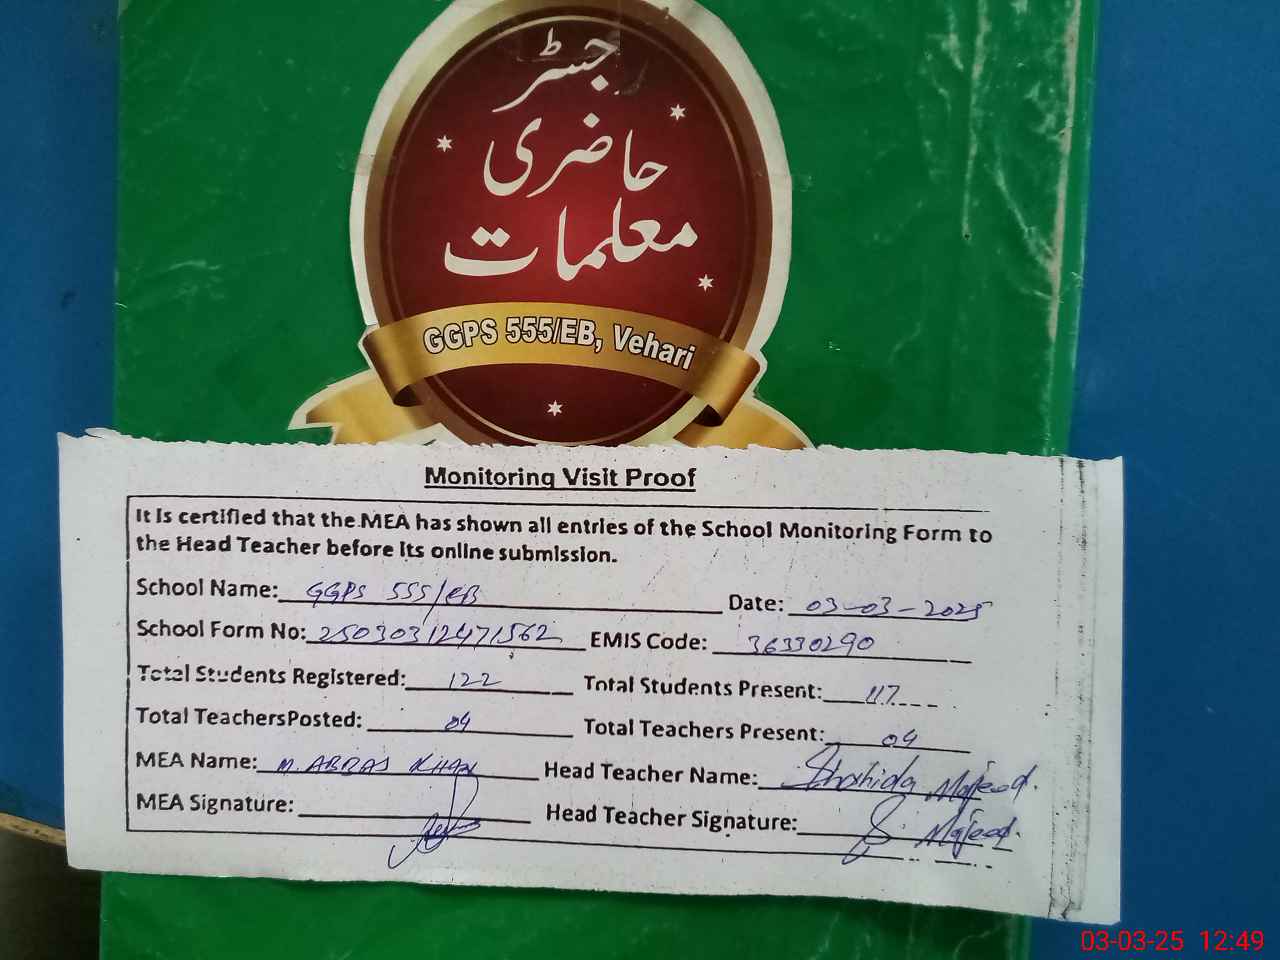 رجسٹر
حاضری
معلمات
GGPS 555/EB, Vehari
Monitoring Visit Proof
It is certified that the MEA has shown all entries of the School Monitoring Form to
the Head Teacher before its online submission.
School Name: GGPS 555/EB Date: 03-03-2025
School Form No: 25030312471562 EMIS Code: 36330290
Total Students Registered: 122 Total Students Present: 117
Total Teachers Posted: 04 Total Teachers Present: 04
MEA Name: M. ABBAS KHAN Head Teacher Name: Shahida Majeed.
MEA Signature: Head Teacher Signature: S. Majeed.
03-03-25 12:49